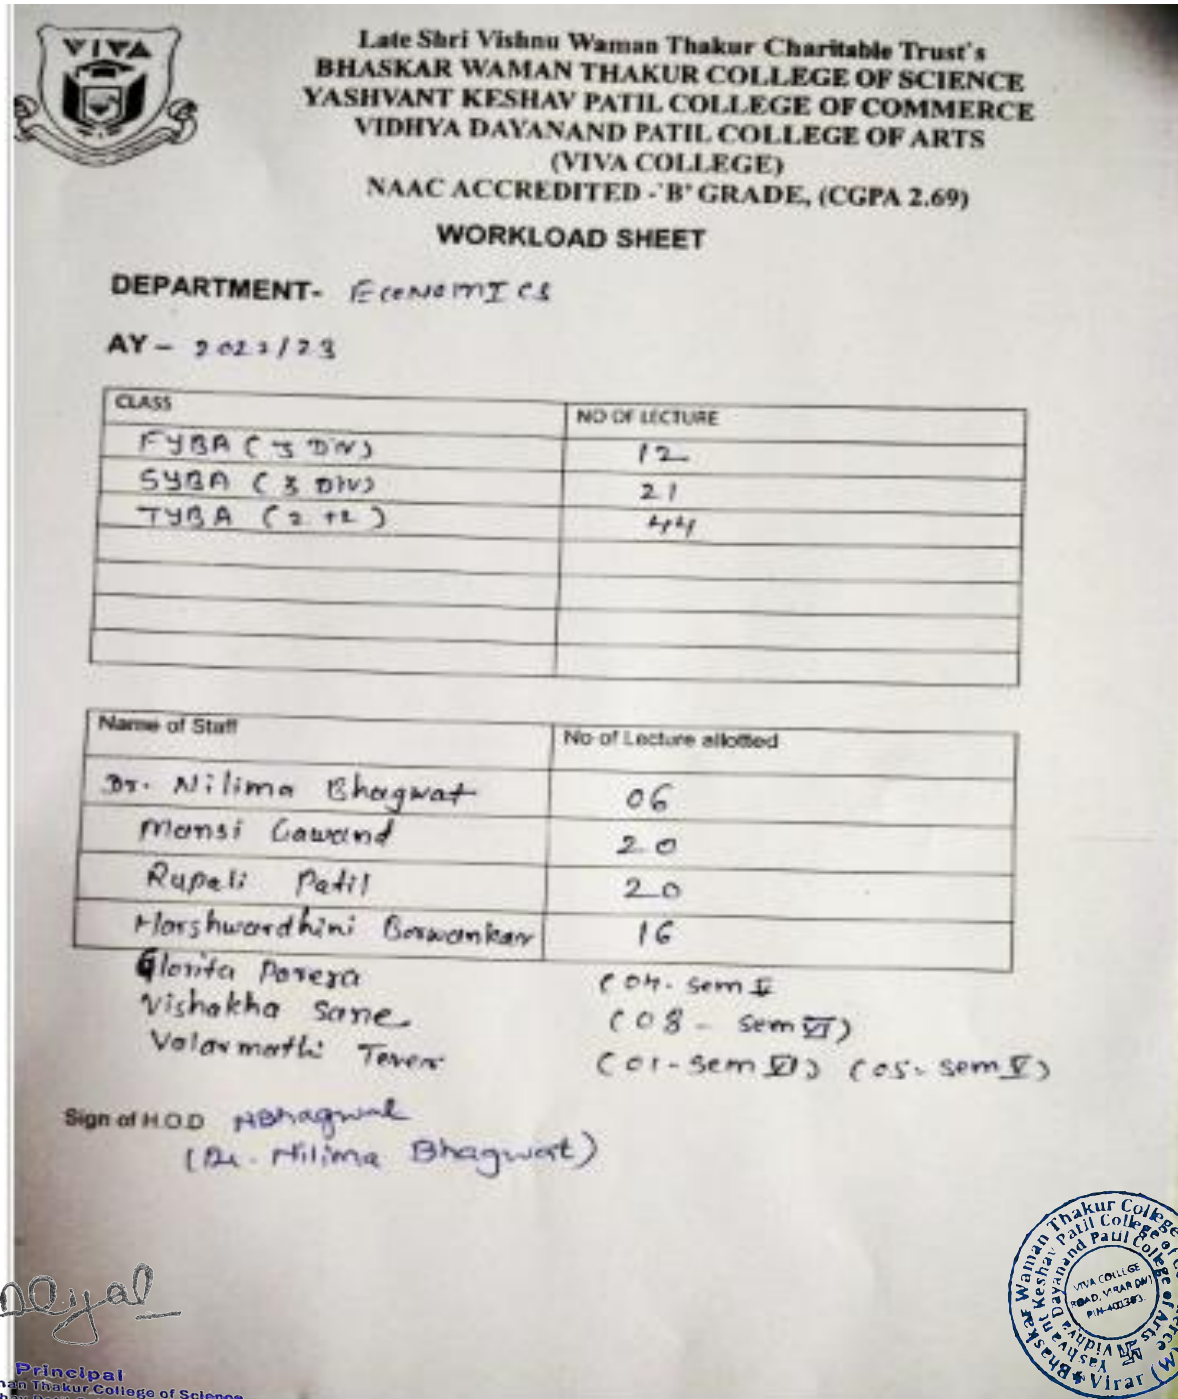 VIVA
Late Shri Vishnu Waman Thakur Charitable Trust's
BHASKAR WAMAN THAKUR COLLEGE OF SCIENCE
YASHVANT KESHAV PATIL COLLEGE OF COMMERCE
VIDHYA DAYANAND PATIL COLLEGE OF ARTS
(VIVA COLLEGE)
NAAC ACCREDITED -'B' GRADE, (CGPA 2.69)
WORKLOAD SHEET
DEPARTMENT- ECONOMICS
AY - 2022/23
CLASS NO OF LECTURE
FYBA (3 DIV) 12
SYBA (3 DIV) 21
TYBA (2 +2) 44
Name of Staff No of Lecture allotted
Dr. Nilima Bhagwat 06
Mansi Gawand 20
Rupali Patil 20
Harshwardhini Borwankar 16
Glorita Perera (04- sem
Vishakha Sane (08 - sem VI)
Valarmathi Tever (01-sem VI) (05- sem V)
Sign of H.O.D NBhagwat
(Dr. Nilima Bhagwat)
Principal
Thakur College of Science
Bhaskar Waman Thakur College
Yashvant Keshav Patil College of
Vidhya Dayanand Patil College of Arts
VIVA COLLEGE
ROAD, VIRAR (W)
PIN-401303.
Virar (W)